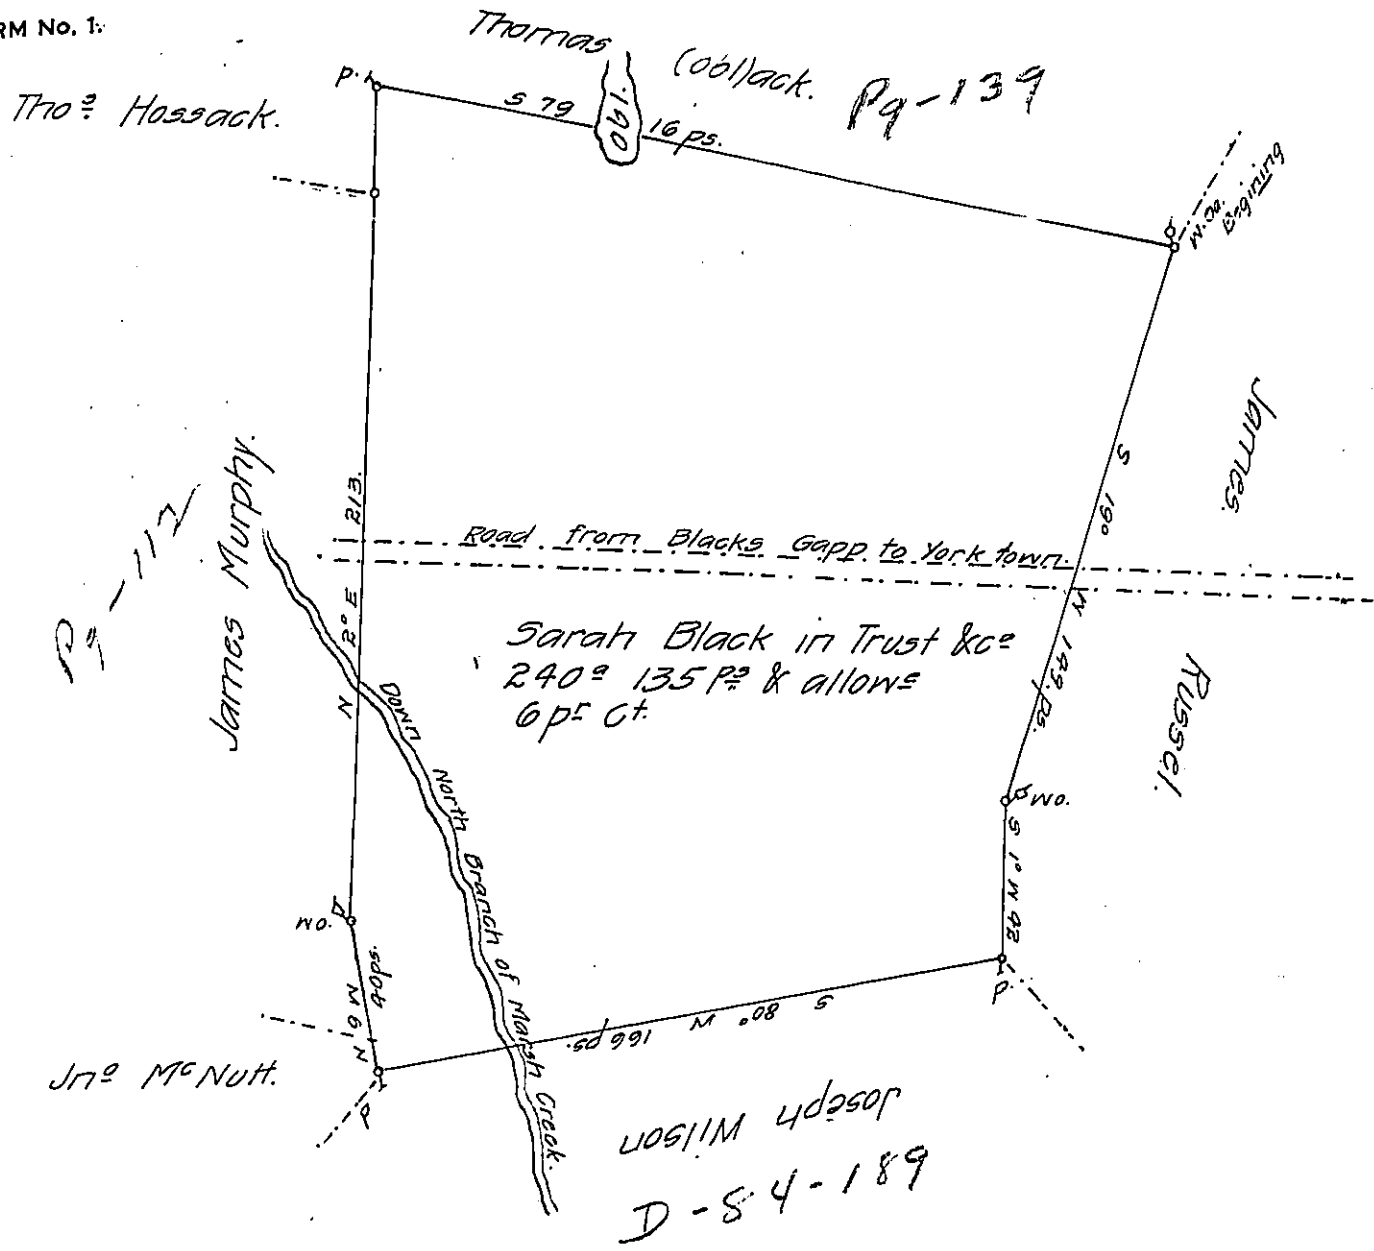 RM No. 1.
Thomas (obl)ack. Pg-139
Thoˢ Hossack.
P.
S 79 obl. 16 ps.
W.Oa. Begining
James Russel.
S 19° W 149. ps.
N 2° E 213.
James Murphy.
Pg-112
Road from Blacks Gapp to York town.
Sarah Black in Trust &cᵃ
240ᵃ 135 pˢ & allowᵉ
6 pʳ Cᵗ.
Down North Branch of Marsh Creek.
WO.
S 1° W 42
P.
WO.
40ps.
N 9 W
S 80° W 166 ps.
Jnᵒ McNutt.
P
Joseph Wilson
D-84-189